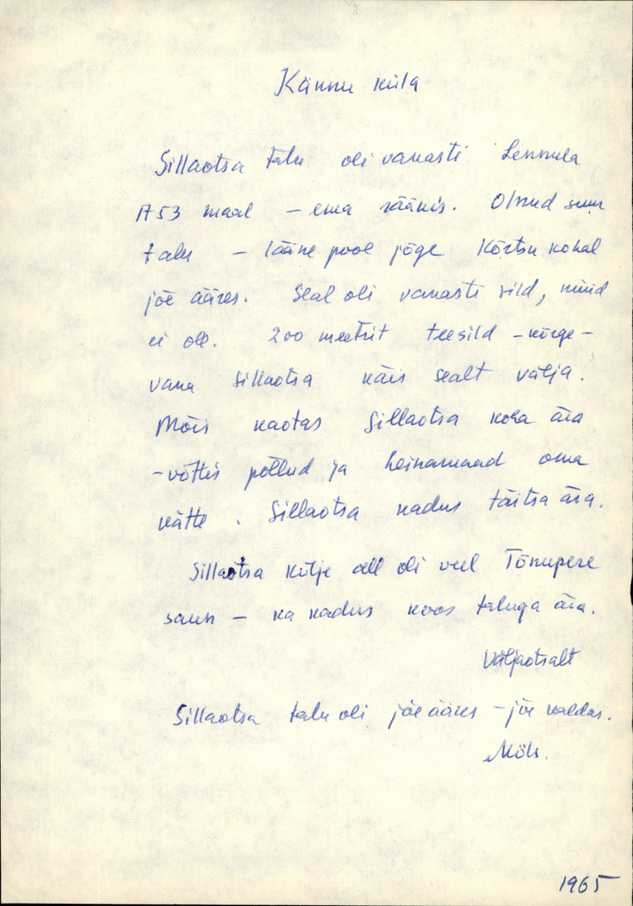 Kännu küla
Sillaotsa talu oli vanasti Lennula
A53 maal – ema rääkis. Olnud suur
talu – lääne pool jõge Kõrtsu kohal
jõe ääres. Seal oli vanasti sild, nüüd
ei ole. 200 meetrit teesild – kõrge –
vana Sillaotsa käis sealt välja.
Mõis kaotas Sillaotsa koha ära
– võttis põllud ja heinamaad oma
kätte. Sillaotsa kadus täitsa ära.
Sillaotsa külje all oli veel Tõnupere
saun – ka kadus koos taluga ära.
Väljaotsalt
Sillaotsa talu oli jõe ääres – jõe kaldas.
1965